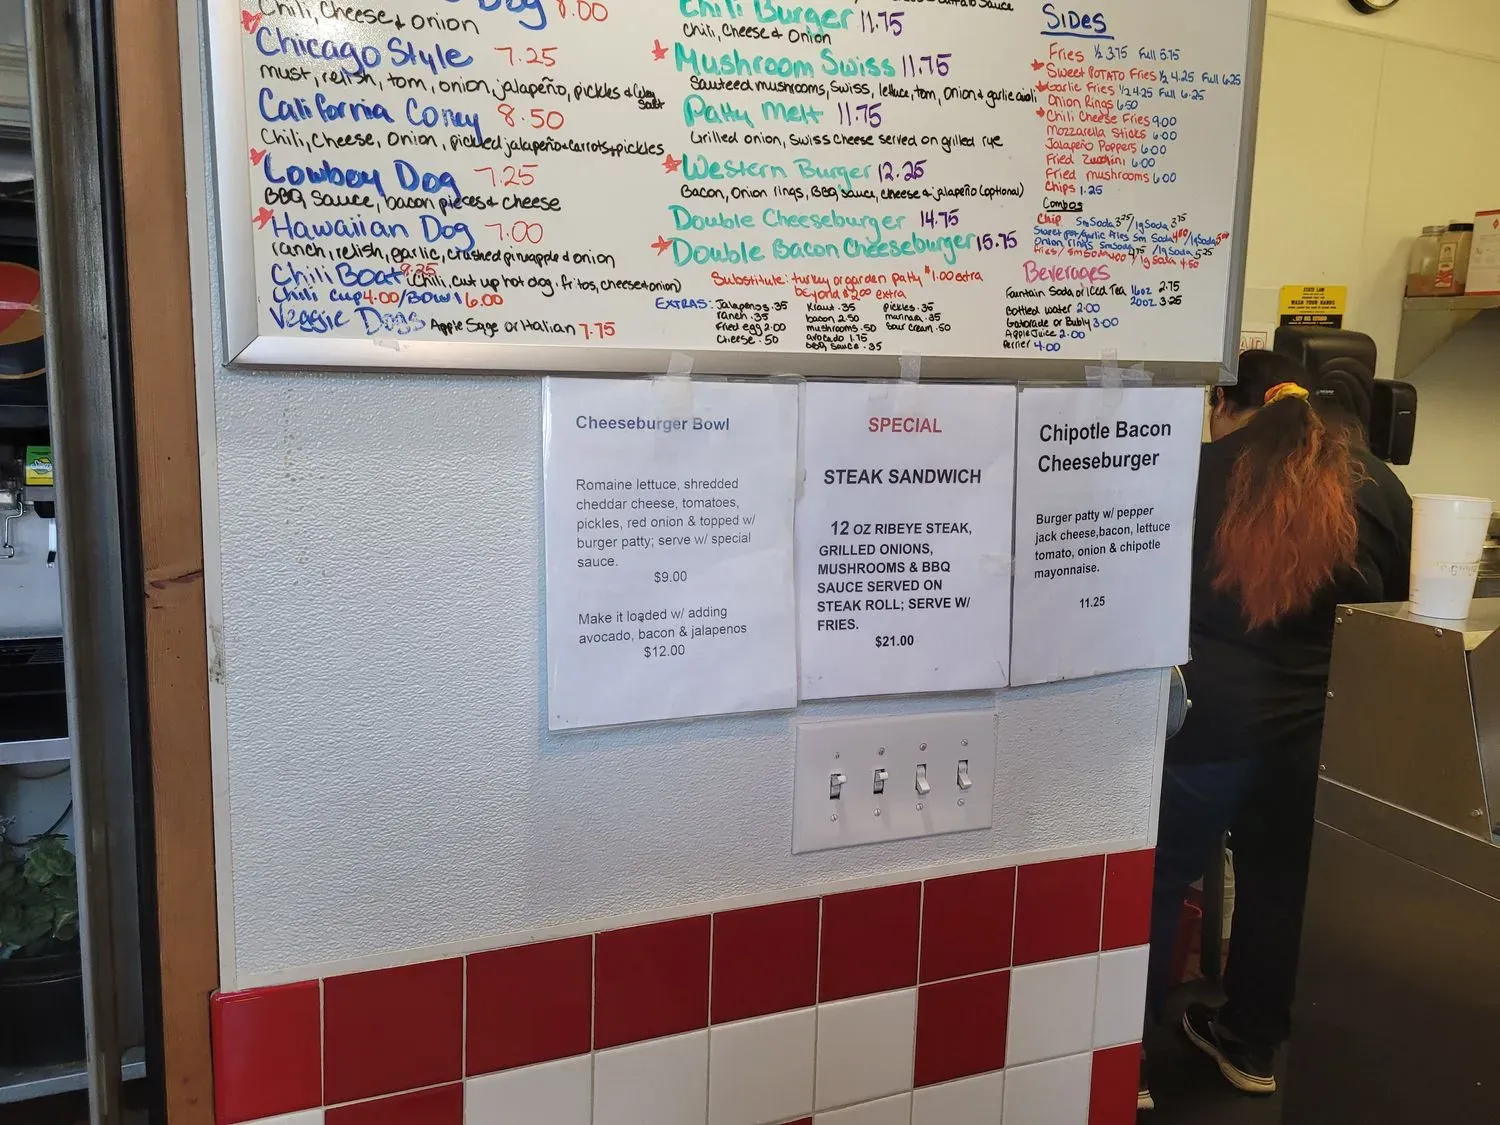 Dog 8.00
Chili, Cheese & onion
Chicago Style 7.25
must, relish, tom, onion, jalapeño, pickles & Celery Salt
California Coney 8.50
Chili, Cheese, Onion, pickled jalapeño & carrots & pickles
Cowboy Dog 7.25
BBQ Sauce, bacon pieces & cheese
Hawaiian Dog 7.00
ranch, relish, garlic, crushed pineapple & onion
Chili Boat 8.25 (chili, cut up hot dog, fritos, cheese & onion)
Chili Cup 4.00/Bowl 6.00
Veggie Dogs Apple Sage or Italian 7.75
Sauce
Chili Burger 11.75
Chili, Cheese & Onion
Mushroom Swiss 11.75
Sauteed mushrooms, Swiss, lettuce, tom, Onion & garlic aioli
Patty Melt 11.75
Grilled onion, Swiss Cheese served on grilled rye
Western Burger 12.25
Bacon, Onion rings, BBQ sauce, cheese & jalapeño (optional)
Double Cheeseburger 14.75
Double Bacon Cheeseburger 15.75
Substitute: turkey or garden patty $1.00 extra
beyond $2.00 extra
EXTRAS: Jalapenos .35
ranch .35
Fried egg 2.00
Cheese .50
Kraut .35
bacon 2.50
mushrooms .50
avocado 1.75
BBQ Sauce .35
pickles .35
marinara .35
Sour Cream .50
SIDES
Fries ½ 3.75 Full 5.75
Sweet POTATO Fries ½ 4.25 Full 6.25
Garlic Fries ½ 4.25 Full 6.25
Onion Rings 6.50
Chili Cheese Fries 9.00
Mozzarella Sticks 6.00
Jalapeño Poppers 6.00
Fried Zucchini 6.00
Fried mushrooms 6.00
Chips 1.25
Combos
Chip Sm Soda 3.25/lg Soda 3.75
Sweet pot/Garlic Fries Sm Soda /lg Soda
Onion rings Sm Soda 4.75 /lg Soda 5.25
Fries/ Sm Soda 4.00 lg Soda 4.50
Beverages
Fountain Soda or Iced Tea 16oz 2.75
20oz 3.25
Bottled water 2.00
Gatorade or Bubly 3.00
Apple Juice 2.00
Perrier 4.00
Cheeseburger Bowl
Romaine lettuce, shredded
cheddar cheese, tomatoes,
pickles, red onion & topped w/
burger patty; serve w/ special
sauce.
$9.00
Make it loaded w/ adding
avocado, bacon & jalapenos
$12.00
SPECIAL
STEAK SANDWICH
12 OZ RIBEYE STEAK,
GRILLED ONIONS,
MUSHROOMS & BBQ
SAUCE SERVED ON
STEAK ROLL; SERVE W/
FRIES.
$21.00
Chipotle Bacon
Cheeseburger
Burger patty w/ pepper
jack cheese,bacon, lettuce
tomato, onion & chipotle
mayonnaise.
11.25
STATE LAW
WASH YOUR HANDS